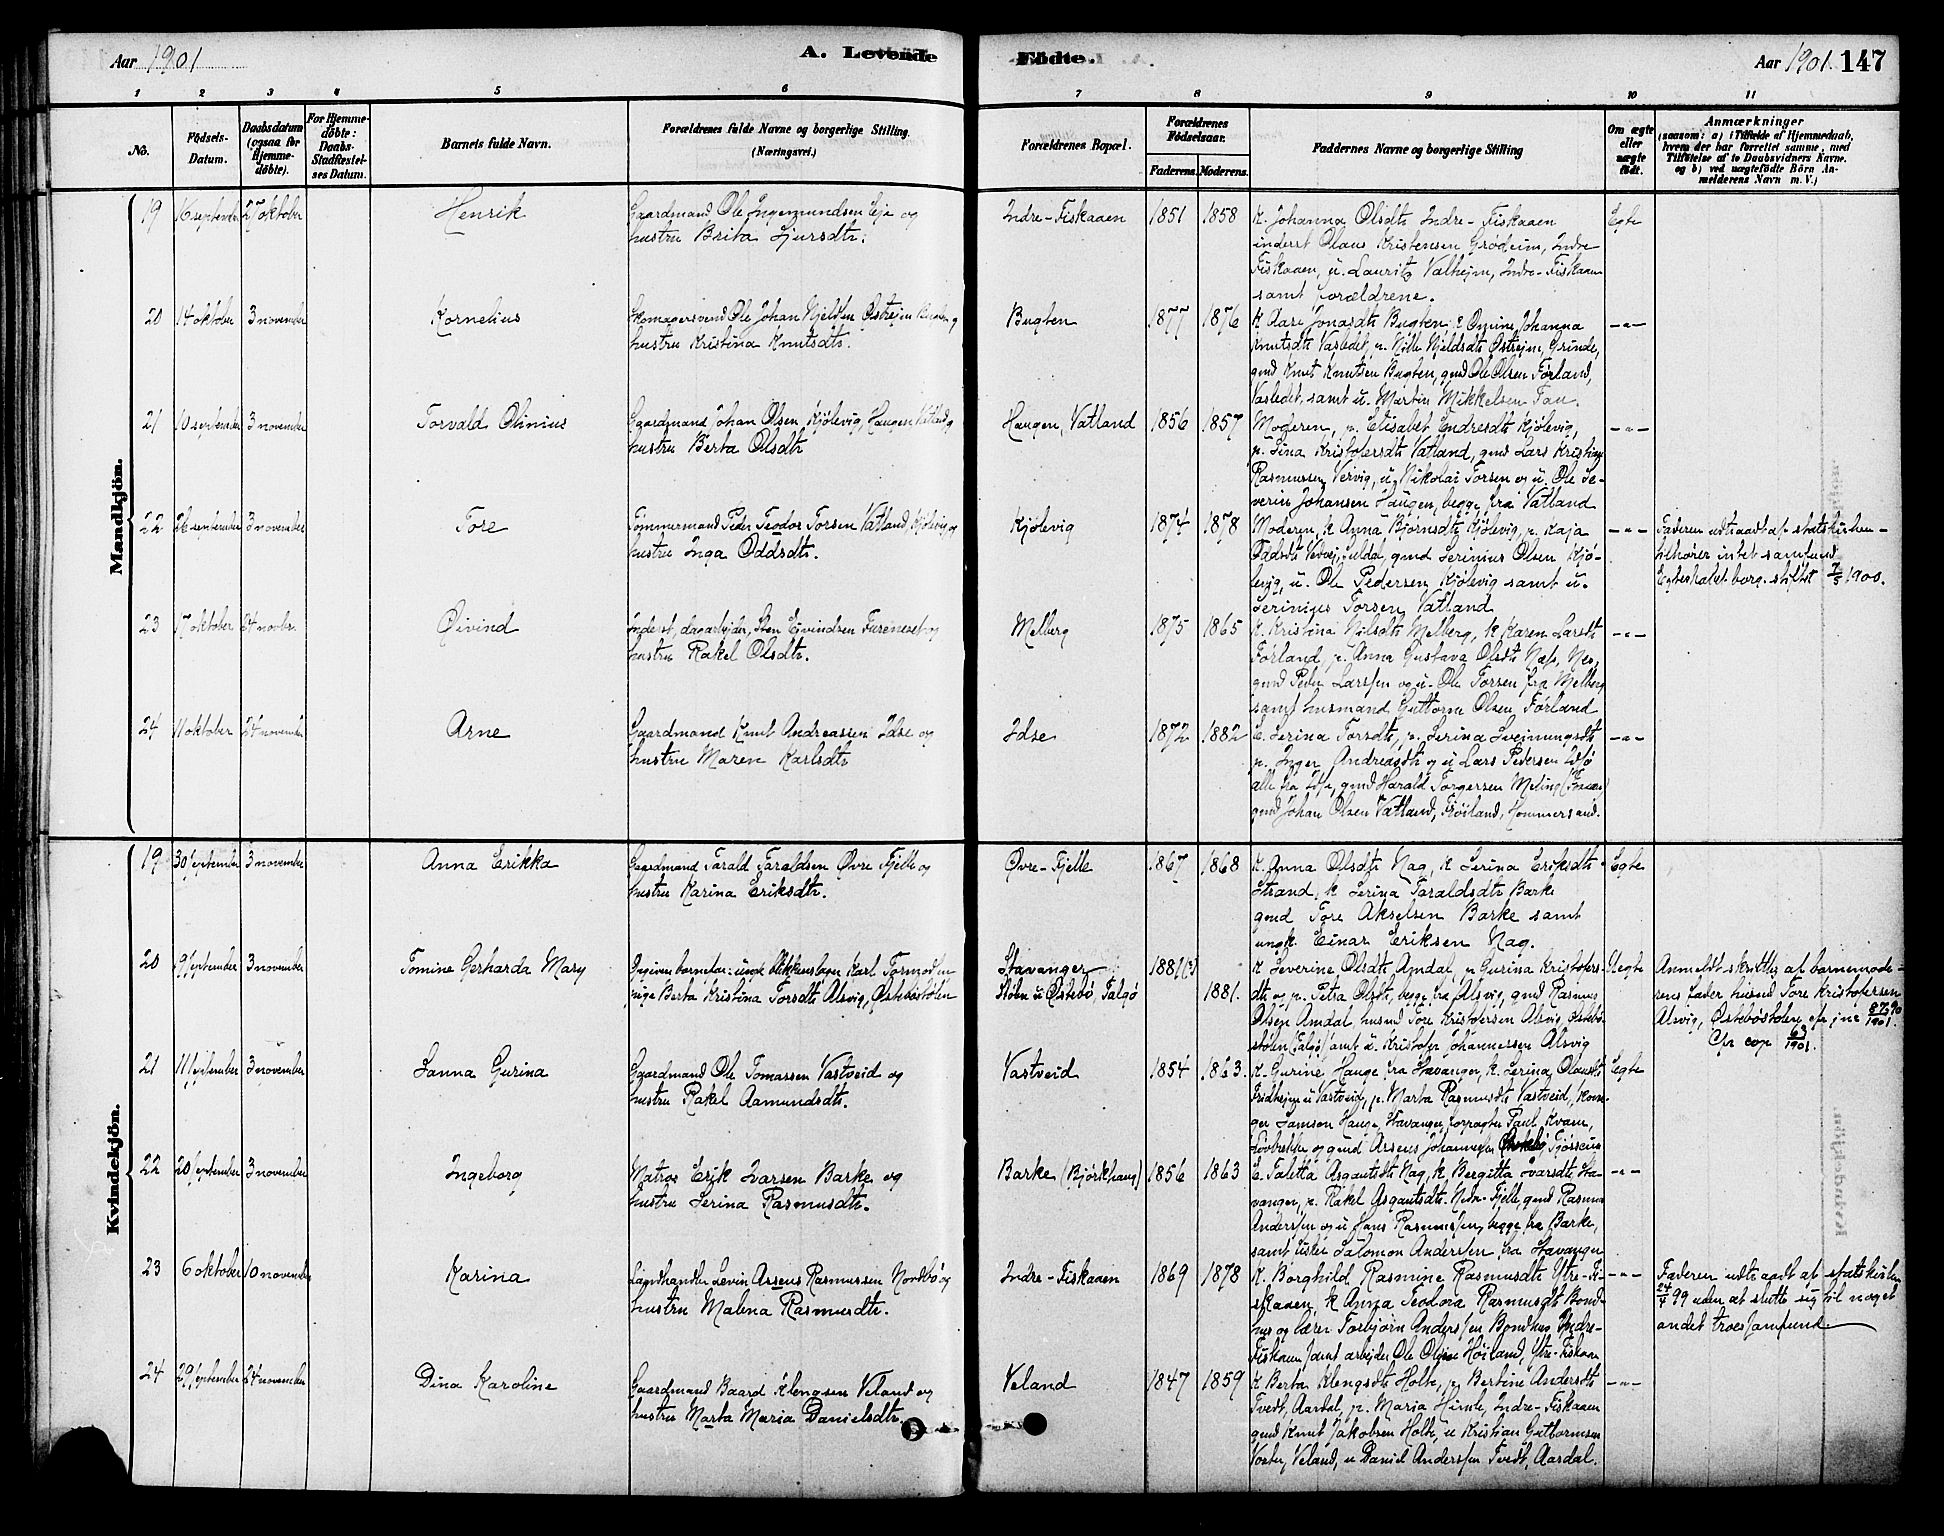 Aar 1901
A. Levende
Födte.
Aar 1901. 147
1 2 3 4 5 6 7 8 9 10 11
No.
Födsels-Datum.
Daabsdatum (ogsaa for Hjemme-döbte).
For Hjemme-döbte: Daabs-Stadfæstel-ses Datum.
Barnets fulde Navn.
Forældrenes fulde Navne og borgerlige Stilling. (Næringsvei.)
Forældrenes Bopæl.
Forældrenes Födselsaar.
Faderens. Moderens.
Faddernes Navne og borgerlige Stilling
Om ægte eller uægte födt.
Anmærkninger
(saasom: a) i Tilfælde af Hjemmedaab, hvem der har forrettet samme, med Tilföielse af to Daabsvidners Navne. og b) ved uægtefödte Börn An-melderens Navn m. V.)
Mandkjön.
19 16 september 27 oktober Henrik
Gaardmand Ole Ingemundsen Eje og
hustru Brita Sjursdtr.
Indre-Fiskaaen 1851 1858
K. Johanna Olsdtr Indre-Fiskaaen
inderst Olaus Kristensen Grødeim, Indre
Fiskaaen, u. Lauritz Valheim, Indre-Fiskaaen
samt forældrene.
Egte
20 14 oktober 3 november Kornelius
Skomagersvend Ole Johan Njelden Østrejm Bugten og
hustru Kristina Knutsdtr.
Bugten 1877 1876
K Aase Jonasdtr Bugten, Johanna
Knutsdtr Vasledet, p. Njelsdtr Østrejm, Grinde,
gmd Knut Knutsen Bugten, gmd Ole Olsen Førland,
Vasledet, samt u. Martin Mikkelsen Fau.
-"-
21 10 september 3 november Torvald Olinius
Gaardmand Johan Olsen Kjølevig, Haugen Vatland og
hustru Berta Olsdtr
Haugen, Vatland 1856 1857
Moderen, p. Elisabet Endresdtr Kjølevig,
p. Sina Kristofersdtr Vatland, gmd Lars Kristian
Rasmussen Vervig, u. Nikolai Torsen og u. Ole Se-
verin Johansen Haugen, begge fra Vatland
-"-
22 26 september 3 november Tore
Tømmermand Peder Teodor Torsen Vatland, Kjølevig og
hustru Inga Oddsdtr.
Kjølevig 1874 1878
Moderen, k Anna Bjørnsdtr Kjølevig, p. Kaja
gmd Serinius Olsen Kjø-
levig, u. Ole Pedersen Kjølevig samt u.
Serinius Torsen Vatland
-"-
Faderen udtraadt af statskirken -
tilhører intet samfund
Egteskabet borg. stiftet 7/5 1900.
23 17 oktober 24 novbr. Øivind
Inderst, dagarbejder, Sten Eivindsen Fureneset og
hustru Rakel Olsdtr.
Melberg 1875 1865
K. Kristina Nilsdtr Melberg, k Karen Larsdtr
Førland, p. Anna Gustava Olsdtr Næss, Nes,
gmd Peder Larssen og u. Ole Torsen fra Melberg
samt husmand Guttorm Olsen Førland
-"-
24 11 oktober 24 november Arne
Gaardmand Knut Andreassen Idse og
hustru Maren Karlsdtr
Idse 1872 1882
E. Serina Torsdtr, p. Serina Svejnungsdtr
p. Inger Andreasdtr og u Lars Pedersen Idsø
alle fra Idse, gmd Harald Torgersen Meling
gmd Johan Olsen Vatland, Frøiland, Hommersand.
-"-
Kvindekjön.
19 30 september 3 november Anna Erikka
Gaardmand Tarald Taraldsen Øvre Fjelle og
hustru Karina Eriksdtr.
Øvre-Fjelle 1867 1868
K. Anna Olsdtr Nag, k Serina Eriksdtr
Strand, k Serina Taraldsdtr Barke
gmd Tore Akselsen Barke samt
ungk. Einar Eriksen Nag.
Egte
20 9 september 3 november Tomine Gerharda Mary
Opgiven barnefar: ungk blikkenslager Karl Tormodsen
pige Berta Kristina Torsdtr Alsvig, Østebøstølen
Stavanger
Stølen u Østebø Talgø
1881(?) 1881.
K Severine Olsdtr Amdal, p Gurina Kristofers-
dtr og p. Petra Olsdtr, begge fra Alsvig, gmd Rasmus
Olsen Amdal, husmd Tore Kristofersen Alsvig Østebø-
stølen (Talgø) samt u. Kristofer Johannessen Alsvig
Uegte
Anmeldt skriftlig af barnemode-
rens fader husmd Tore Kristofersen
Alsvig, Østebøstølen cfr jnr 87 90/1901.
Cfr cop 63/1901.
21 11 september 3 november Sanna Gurina
Gaardmand Ole Tomassen Vastveid og
hustru Rakel Aamundsdtr.
Vastveid 1854 1863.
K. Gurine Hauge fra Stavanger, k. Serina Olausdtr
Fridhejm u Vastveid, p. Marta Rasmusdtr Vastveid,
Samson Hauge, Stavanger, Paul Kvam,
og gmd Assens Johannessen
Egte
22 20 september 3 november Ingeborg
Matros Erik Ivarsen Barke og
hustru Serina Rasmusdtr.
Barke (Bjørkhaug) 1856 1863
E. Taletta Asgautsdtr Nag, k Bergitta Ivarsdtr Sta-
vanger, p. Rakel Asgautsdtr. Ndr-Fjelle gmd Rasmus
Anderssen og u Hans Rasmussen, begge fra Barke,
samt Salomon Anderssen fra Stavanger
-"-
23 6 oktober 10 november Karina
Landhandler Levin Assens Rasmussen Nordbø og
hustru Malena Rasmusdtr.
Indre-Fiskaaen 1869 1878
K. Borghild Rasmine Rasmusdtr Ytre-Fi-
skaaen k Anna Teodora Rasmusdtr Bond-
hus og lærer Torbjørn Anderssen Bondhus Indre-
Fiskaaen samt arbejder Ole Olsen Høiland, Ytre-Fiskaaen
-"-
Faderen udtraadt af statskirken
24/4 99 uden at slutte sig til noget
andet troessamfund
24 29 september 24 november Dina Karoline
Gaardmand Baard Klengsen Veland og
hustru Marta Maria Danielsdtr.
Veland 1847 1859
K Berta Klengsdtr Holte, p Bertine Andersdtr
Tvedt, Aardal, p. Maria Hirnle, Indre-Fiskaaen
gmd Knut Jakobsen Holte, u Kristian Guttormsen
Veland, u Daniel Anderssen Tvedt, Aardal.
-"-